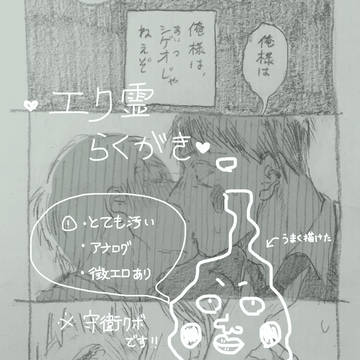 俺様は
俺様は、
あいつ
シゲオじゃ
ねえぞ
エク霊
らくがき
! ・とても汚い
・アナログ
・微エロあり
←うまく描けた
※守衛クボ
です!!